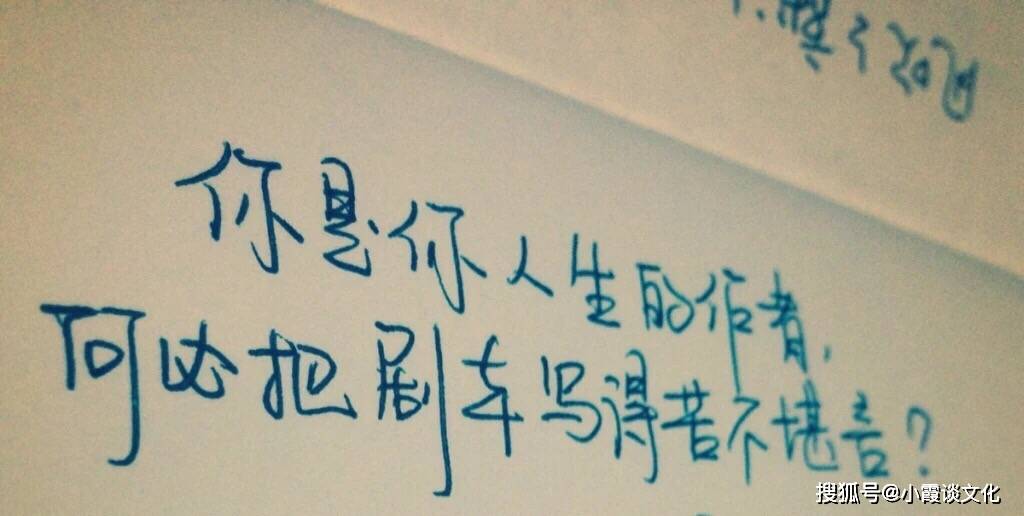 你是你人生的作者,
何必把剧本写得苦不堪言?
搜狐号@小霞谈文化